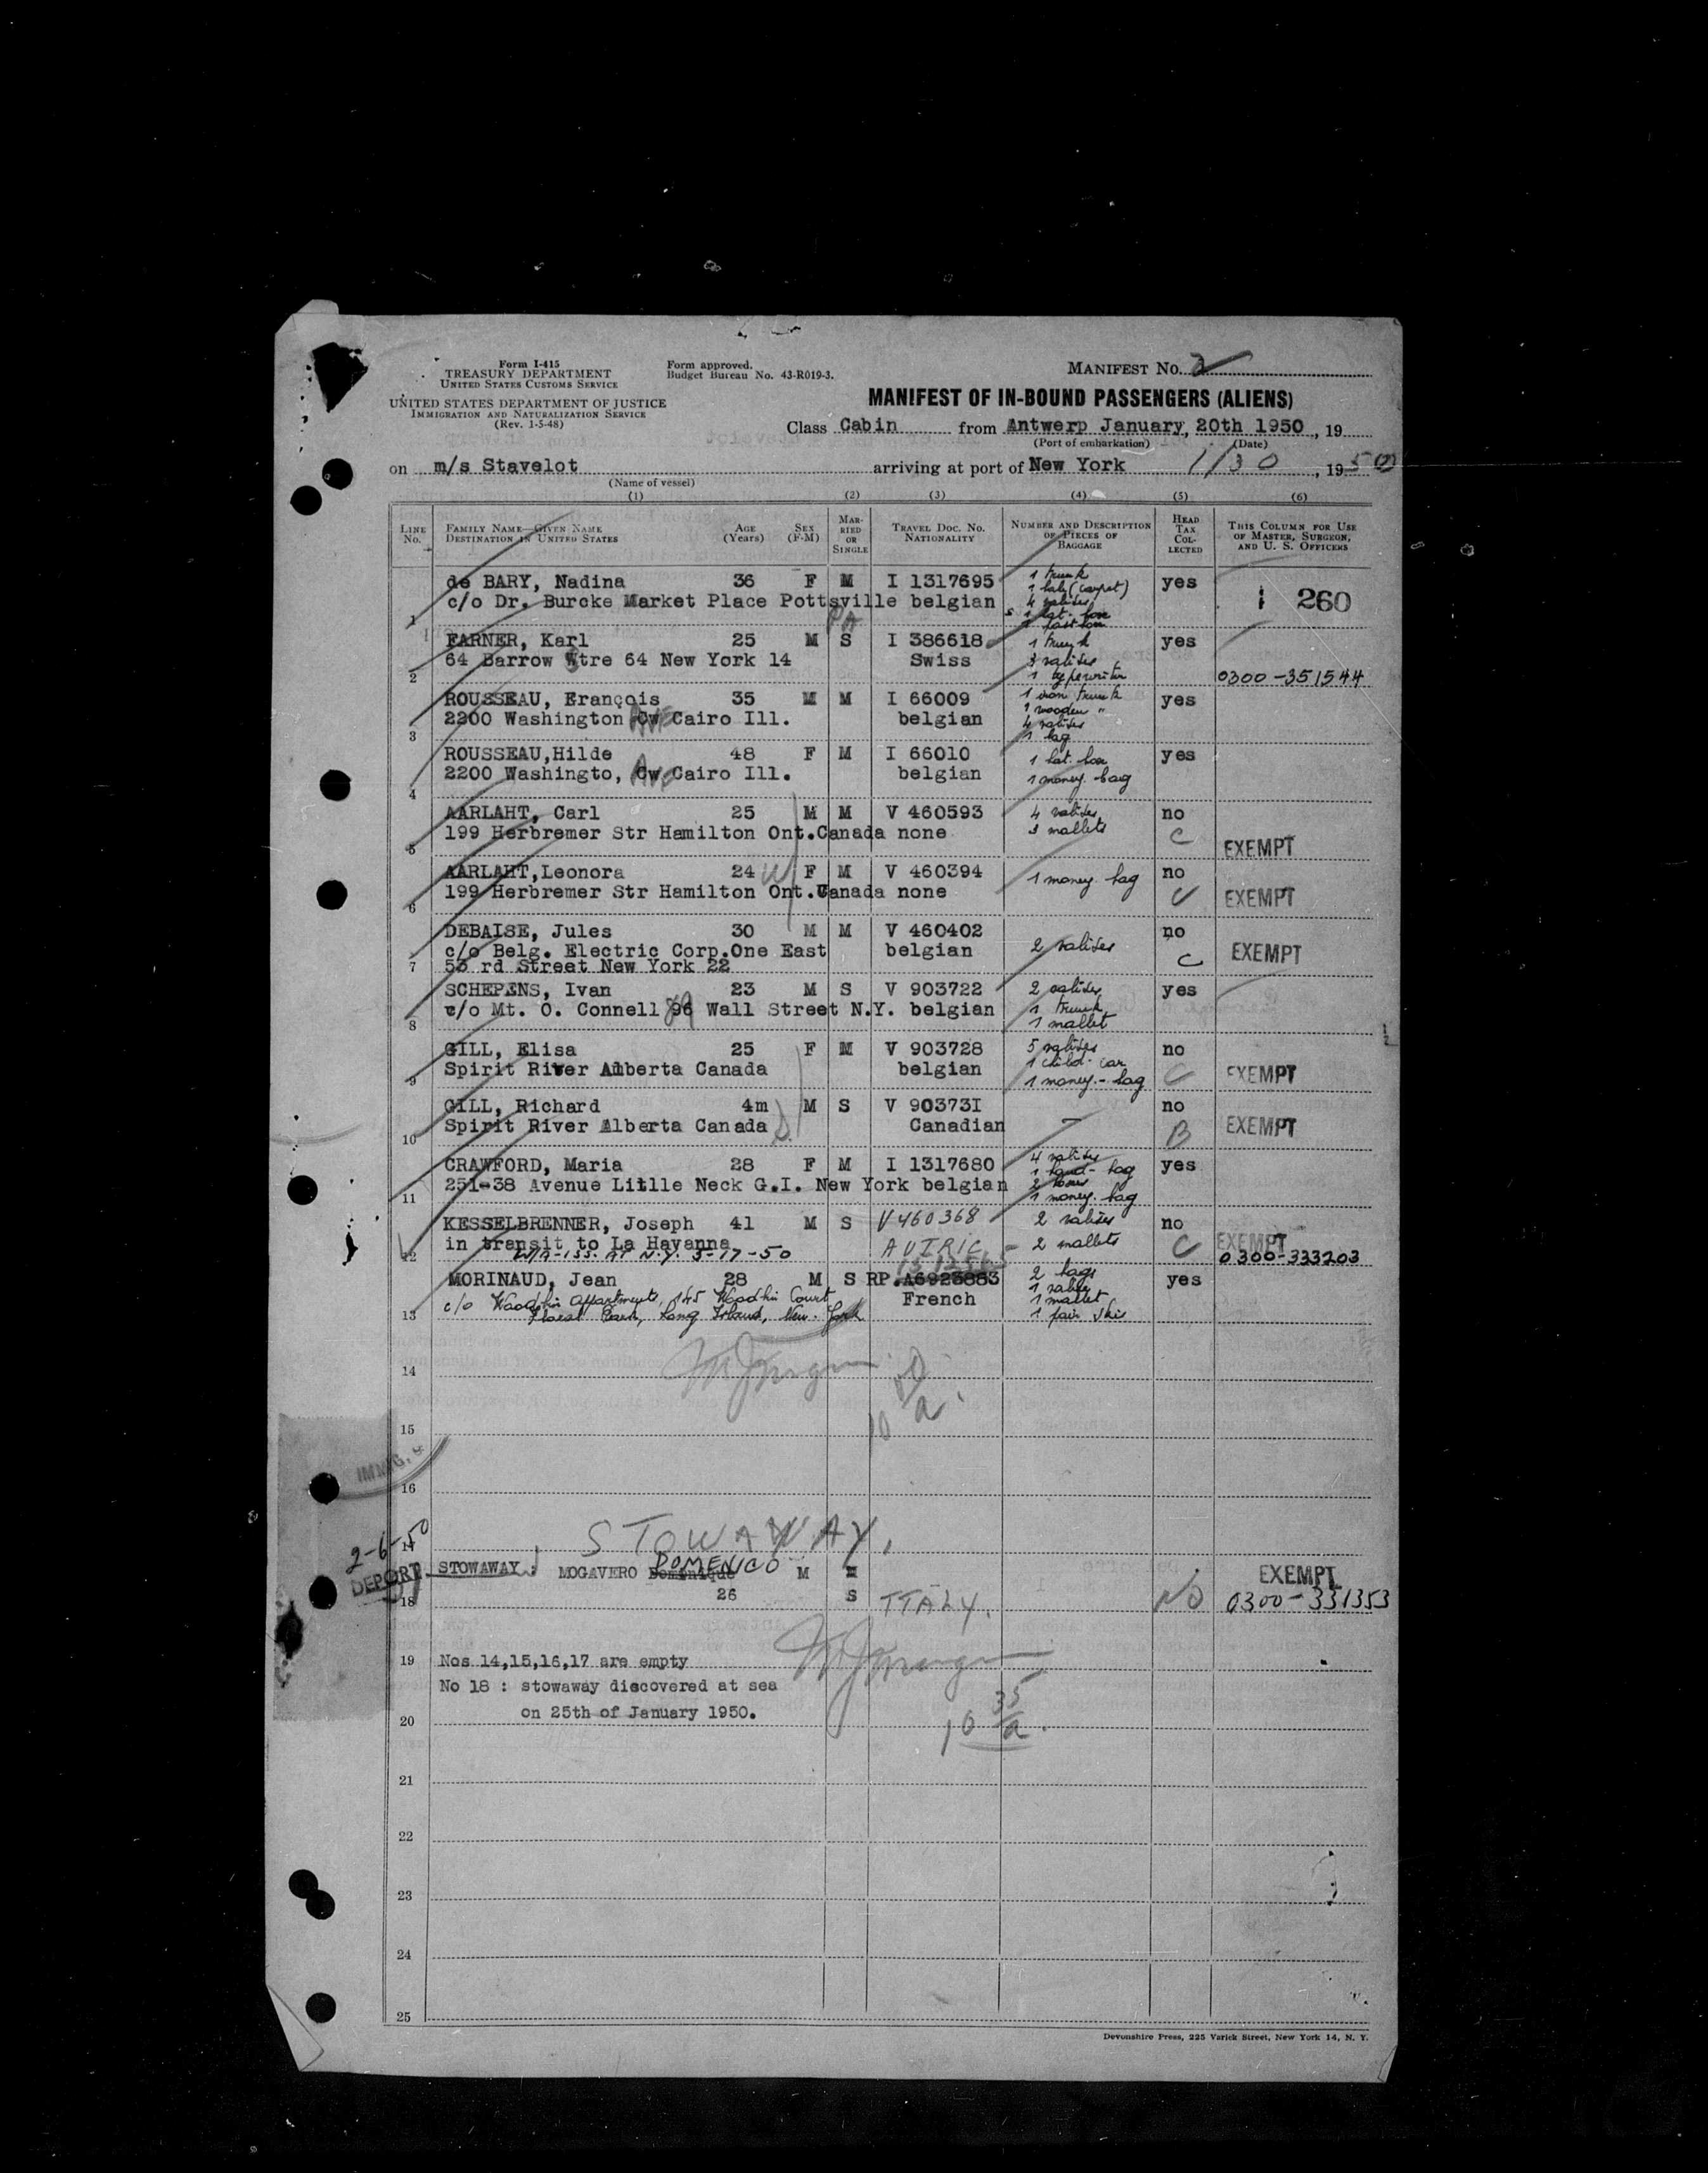 Form I-415
TREASURY DEPARTMENT
UNITED STATES CUSTOMS SERVICE
UNITED STATES DEPARTMENT OF JUSTICE
IMMIGRATION AND NATURALIZATION SERVICE
(Rev. 1-5-48)
Form approved.
Budget Bureau No. 43-R019-3.
MANIFEST NO. 2
MANIFEST OF IN-BOUND PASSENGERS (ALIENS)
Class Cabin from Antwerp January, 20th 1950, 19
(Port of embarkation) (Date)
on m/s Stavelot arriving at port of New York 1/30, 1950
(Name of vessel)
(1) (2) (3) (4) (5) (6)
LINE No. FAMILY NAME—GIVEN NAME DESTINATION IN UNITED STATES AGE (Years) SEX (F-M) MARRIED OR SINGLE TRAVEL DOC. NO. NATIONALITY NUMBER AND DESCRIPTION OF PIECES OF BAGGAGE HEAD TAX COLLECTED THIS COLUMN FOR USE OF MASTER, SURGEON, AND U. S. OFFICERS
1 de BARY, Nadina 36 F M I 1317695 1 trunk yes
c/o Dr. Burcke Market Place Pottsville belgian 4 valises 1 260
2 FARNER, Karl 25 M S I 386618 1 trunk yes
64 Barrow Wtre 64 New York 14 Swiss 3 valises
1 typewriter 0300-351544
3 ROUSSEAU, Erançois 35 M M I 66009 1 iron trunk yes
2200 Washington Ave Cairo Ill. belgian 1 wooden "
4 valises
1 bag
4 ROUSSEAU,Hilde 48 F M I 66010 1 hat-box yes
2200 Washingto, Ave Cairo Ill. belgian 1 money-bag
5 AARLAHT, Carl 25 M M V 460593 4 valises no
199 Herbremer Str Hamilton Ont.Canada none 3 mallets C EXEMPT
6 AARLAHT,Leonora 24 F M V 460394 1 money-bag no
199 Herbremer Str Hamilton Ont.Canada none C EXEMPT
7 DEBAISE, Jules 30 M M V 460402 no
c/o Belg. Electric Corp.One East belgian 2 valises C EXEMPT
53 rd Street New York 22
8 SCHEPENS, Ivan 23 M S V 903722 2 valises yes
c/o Mt. O. Connell 96 Wall Street N.Y. belgian 1 trunk
1 mallet
9 GILL, Elisa 25 F M V 903728 5 valises no
Spirit River Alberta Canada belgian 1 child-car C EXEMPT
1 money-bag
10 GILL, Richard 4m M S V 90373I no
Spirit River Alberta Canada Canadian B EXEMPT
11 CRAWFORD, Maria 28 F M I 1317680 4 valises yes
251-38 Avenue Litlle Neck G.I. New York belgian 1 hand-bag
1 money-bag
12 KESSELBRENNER, Joseph 41 M S V460368 2 valises no
in transit to La Havanna 2 mallets C EXEMPT
W/A-ISS. AT N.Y. 3-17-50 0300-333203
13 MORINAUD, Jean 28 M S RP.A6923883 2 bags yes
c/o 145 Court French 1 valise
Floral Park, Long Island, New-York 1 mallet
1 pair ski
14
15
16
IMMIG.
17 STOWAWAY.
2-6-50
DEPORT STOWAWAY : MOGAVERO Dominique DOMENICO M EXEMPT
18 26 S ITALY. NO 0300-331353
19 Nos 14,15,16,17 are empty
No 18 : stowaway discovered at sea
20 on 25th of January 1950.
10 35/a.
21
22
23
24
25
Devonshire Press, 225 Varick Street, New York 14, N. Y.